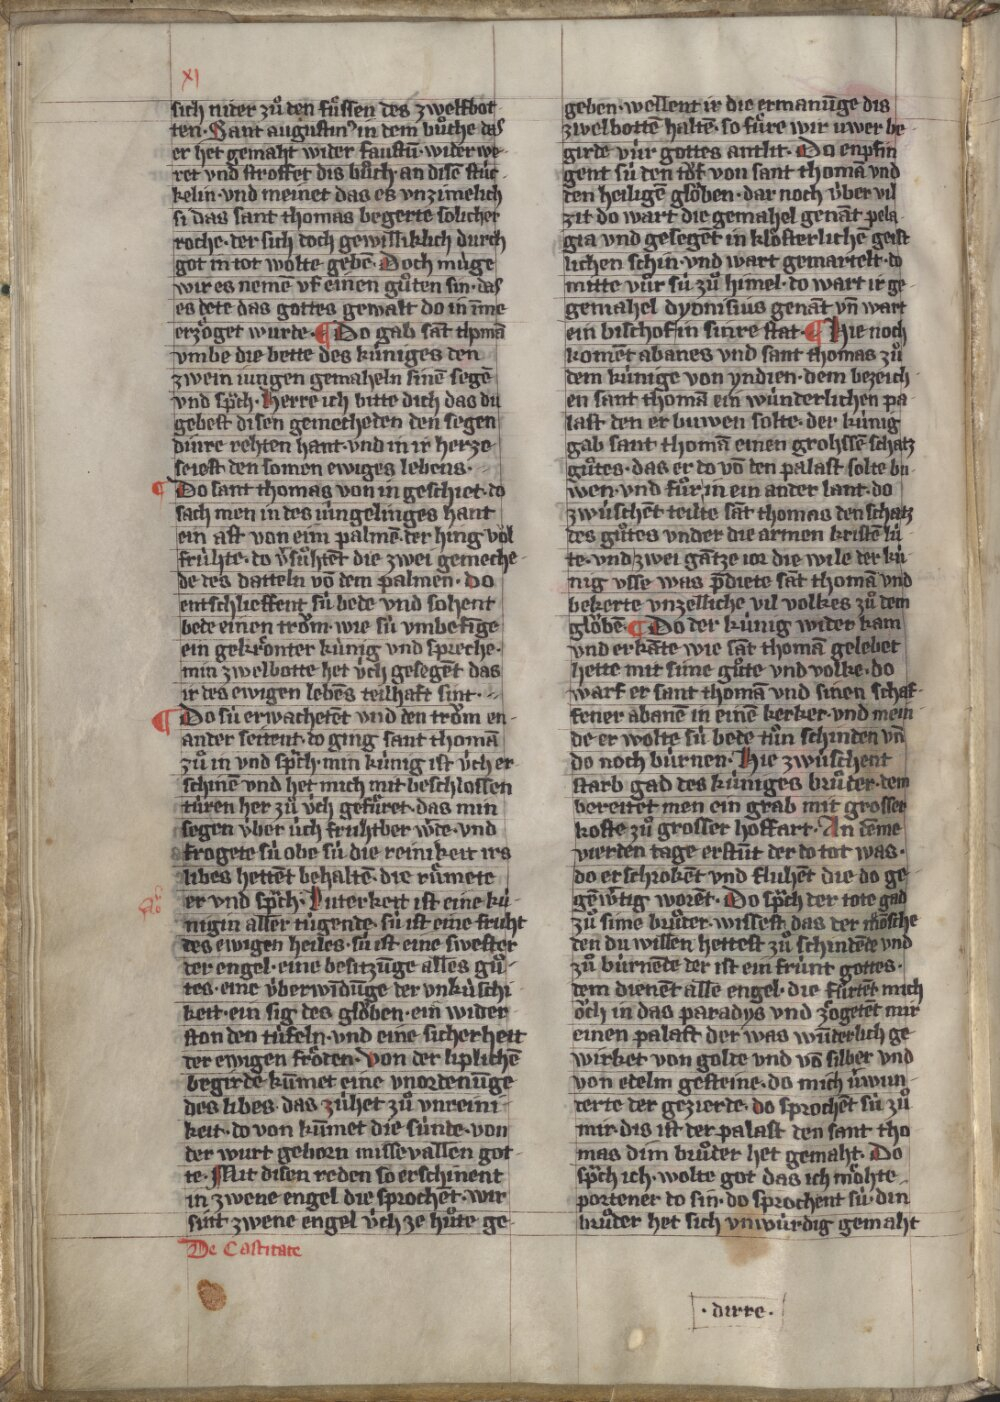 XI
sich nider zuͦ den fuͤssen des zwelfbot-
ten· Sant augustinꝰ in dem buͦche das
er het gemaht wider faustū· wider we-
ret vnd stroffet dis buͦch an dise stuͤc-
kelin· vnd meinet das es vnzimelich
si das sant thomas begerte solicher
roche· der sich doch gewissiklich durch
got in tot wolte gebē· Doch muͤge
wir es neme vf einen guͦten sin· das
es dete das gottes gewalt do in īme
erzoͤget wurde· ¶ Do gab sāt thomā
vmbe die bette des kuͤniges den
zwein iungen gemaheln sinē segē
vnd spͣch· Herre ich bitte dich das du
gebest disen gemecheden den segen
dinre rehten hant· vnd in ir herze
seiest den somen ewiges lebens·
¶ Do sant thomas von in geschiet· do
sach men in des iuͤngelinges hant
ein ast von ein palmē· der hing vol
fruͤhte· do v̓suͦhtēt die zwei gemeche-
de des datteln vō dem palmen· Do
entschlieffent suͤ bede vnd sohent
bede einen troͮm· wie suͤ vmbefige
ein gekroͤnter kuͤnig vnd spreche·
min zwelbotte het uͤch gesegēt das
ir des ewigen lebēs teilhaft sint·
¶ Do suͤ erwachetēt vnd den troͮm en-
ander seitent· do ging sant thomā
zuͦ in vnd spͣch· min kuͤnig ist uͤch er-
schinē vnd het mich mit beschlossen
tuͤren her zuͦ uͤch gefuͤret· das min
segen uͤber uͤch fruhtber w̓de· vnd
frogete suͤ obe suͤ die reinikeit irs
libes hettēt behaltē· die ruͤmete
er vnd spͣch· Luterkeit ist eine kuͤ-
nigin aller tugende· suͤ ist eine fruht
des ewigen heiles· suͤ ist eine swester
der engel· eine besitzūge alles guͦ-
tes· eine uͤberwīdūge der vnkuͤschi-
keit· ein sig des gloͮben· ein wider
ston den tuͤfeln· vnd eine sicherheit
der ewigen froͤden· Von der liplichē
begirde kūmet eine vnordenūge
des libes· das zuͤhet zuͦ vnreini-
keit· do von kūmet die suͤnde· von
der wurt geborn missevallen got-
te· Mit disen reden so erschinent
in zwene engel die sprochēt· wir
sint zwene engel uͤch ze huͦte ge-
De Castitate
geben· wellent ir die ermanūge dis
zwelbottē haltē· so fuͤre wir uwer be-
girde vuͤr gottes antlit· Do enpfin
gent suͤ den toͮf von sant thomā vnd
den heiligē gloͮben· dar noch uͤber vil
zit do wart die gemahel genāt pela-
gia vnd gesegēt in kloͤsterlichē geist
lichen schin· vnd wart gemartelt· do
mitte vuͦr suͤ zuͦ himel· do wart ir ge-
gemahel dyonisius genāt vn̄ wart
ein bischof in sinre stat· ¶ Hie noch
komēt abanes vnd sant thomas zuͦ
dem kuͤnige von yndien· dem bezeich-
en sant thomā ein wuͤnderlichen pa-
last den er buwen solte· der kuͤnig
gab sant thomā einen grohssē schatz
guͦtes· das er do vō den palast solte bu-
wen· vnd fuͦr in ein ander lant· do
zwuͤschēt teilte sāt thomas den schatz
des guͦtes vnder die armen kristē luͤ-
te· vnd zwei gātze ior die wile der kuͤ-
nig vsse was p̄diete sāt thomā vnd
bekerte vnzelliche vil volkes zuͦ dem
gloͮbē· ¶ Do der kuͤnig wider kam
vnd erkāte wie sāt thomā gelebet
hette mit sime guͦte vnd volke· do
warf er sant thomā vnd sinen schaf-
fener abanē in einē kerker· vnd mein-
de er wolte suͤ bede tuͦn schinden vn̄
do noch buͤrnen· Hie zwuͤschent
starb gad des kuͤniges bruͦder· dem
bereitet men ein grab mit grosser
koste zuͦ grosser hoffart· An dēme
vierden tage erstūt der do tot was·
do erschrokēt vnd fluhēt die do ge-
gēw̓tig worēt· Do spͣch der tote gad
zuͦ sime bruͦder· wissest das der mēsche
den du willen hettest zuͦ schindēde vnd
zuͦ buͤrnēde der ist ein fruͤnt gottes·
dem dienēt alle engel· die fuͦrtēt mich
oͮch in das paradys vnd zoͤgetēt mir
einen palast der was wūderlich ge
wirket von golde vnd vō silber vnd
von edelm gesteine· do mich uͤwun-
derte der gezierde· do sprochēt suͤ zuͦ
mir· dis ist der palast den sant tho
mas dim bruͦder het gemaht· Do
spͣch ich· wolte got das ich moͤhte
portener do sin· do sprochent suͤ· din
bruͦder het sich vnwuͤrdig gemaht
·dirre·